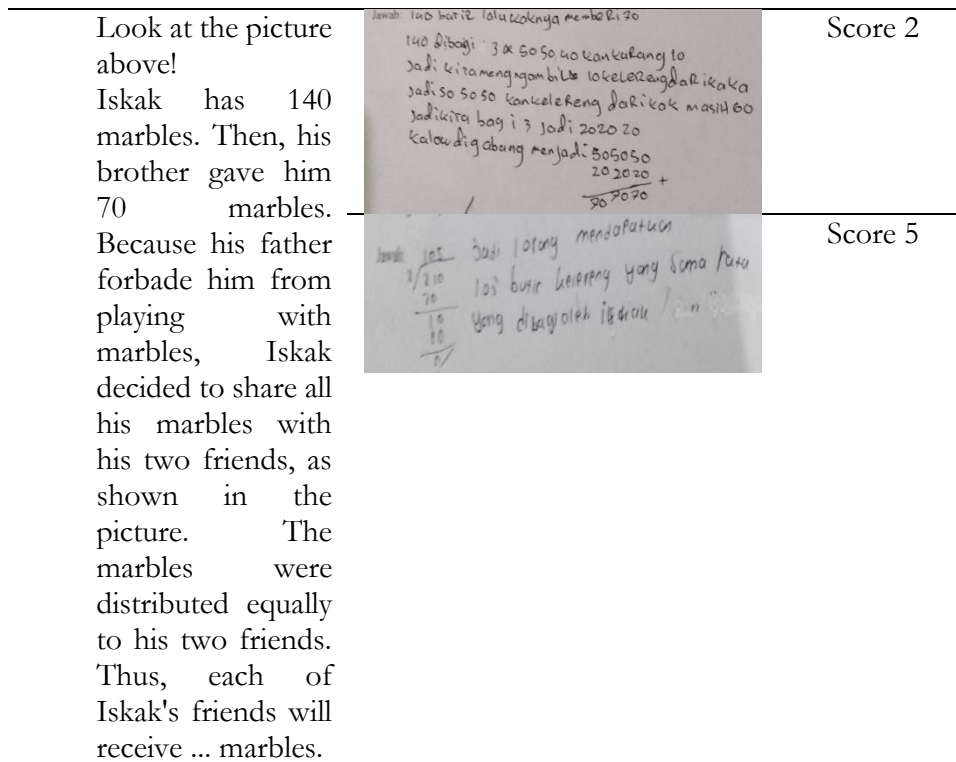 Look at the picture
above!
Iskak has 140
marbles. Then, his
brother gave him
70 marbles.
Because his father
forbade him from
playing with
marbles, Iskak
decided to share all
his marbles with
his two friends, as
shown in the
picture. The
marbles were
distributed equally
to his two friends.
Thus, each of
Iskak's friends will
receive ... marbles.
Jawab: 140 butir lalu koknya memberi 70
140 dibagi 3 50 50 40 kan kurang 10
jadi kita mengngambil 10 kelereng dari kaka
jadi 50 50 50 kan kelereng dari kak masih 60
jadi kita bagi 3 jadi 20 20 20
kalau digabung menjadi 50 50 50
20 20 20 +
70 70 70
Score 2
Jawab: 105 Jadi 1 orang mendapatkan
2/210 105 butir kelereng yang sama rata
20 yang dibagi oleh iskak
10
10
0
Score 5